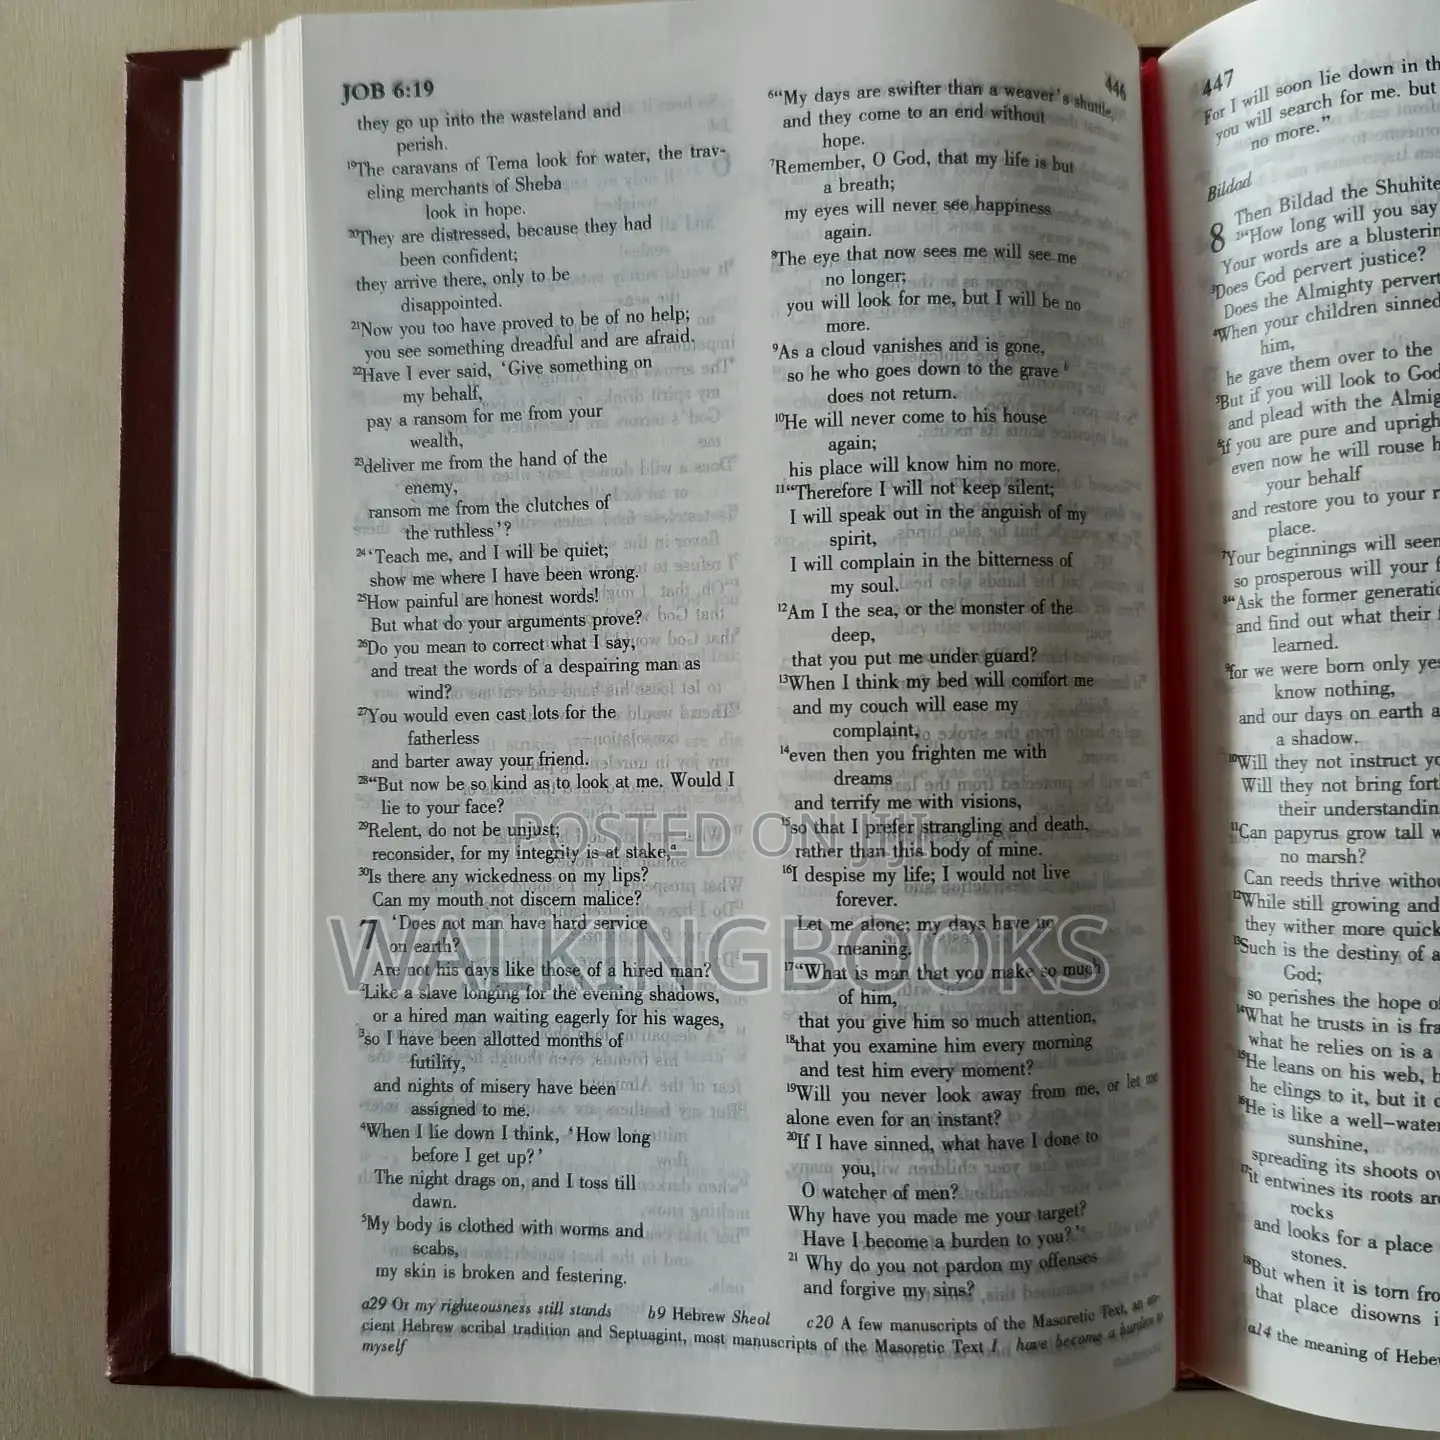 JOB 6:19
446
they go up into the wasteland and
perish.
¹⁹The caravans of Tema look for water, the trav-
eling merchants of Sheba
look in hope.
²⁰They are distressed, because they had
been confident;
they arrive there, only to be
disappointed.
²¹Now you too have proved to be of no help;
you see something dreadful and are afraid.
²²Have I ever said, ‘Give something on
my behalf,
pay a ransom for me from your
wealth,
²³deliver me from the hand of the
enemy,
ransom me from the clutches of
the ruthless’?
²⁴‘Teach me, and I will be quiet;
show me where I have been wrong.
²⁵How painful are honest words!
But what do your arguments prove?
²⁶Do you mean to correct what I say,
and treat the words of a despairing man as
wind?
²⁷You would even cast lots for the
fatherless
and barter away your friend.
²⁸“But now be so kind as to look at me. Would I
lie to your face?
²⁹Relent, do not be unjust;
reconsider, for my integrity is at stake,ᵃ
³⁰Is there any wickedness on my lips?
Can my mouth not discern malice?
7 ‘Does not man have hard service
on earth?
Are not his days like those of a hired man?
²Like a slave longing for the evening shadows,
or a hired man waiting eagerly for his wages,
³so I have been allotted months of
futility,
and nights of misery have been
assigned to me.
⁴When I lie down I think, ‘How long
before I get up?’
The night drags on, and I toss till
dawn.
⁵My body is clothed with worms and
scabs,
my skin is broken and festering.
⁶“My days are swifter than a weaver’s shuttle,
and they come to an end without
hope.
⁷Remember, O God, that my life is but
a breath;
my eyes will never see happiness
again.
⁸The eye that now sees me will see me
no longer;
you will look for me, but I will be no
more.
⁹As a cloud vanishes and is gone,
so he who goes down to the grave ᵇ
does not return.
¹⁰He will never come to his house
again;
his place will know him no more.
¹¹“Therefore I will not keep silent;
I will speak out in the anguish of my
spirit,
I will complain in the bitterness of
my soul.
¹²Am I the sea, or the monster of the
deep,
that you put me under guard?
¹³When I think my bed will comfort me
and my couch will ease my
complaint,
¹⁴even then you frighten me with
dreams
and terrify me with visions,
¹⁵so that I prefer strangling and death,
rather than this body of mine.
¹⁶I despise my life; I would not live
forever.
Let me alone; my days have no
meaning.
¹⁷“What is man that you make so much
of him,
that you give him so much attention,
¹⁸that you examine him every morning
and test him every moment?
¹⁹Will you never look away from me, or let me
alone even for an instant?
²⁰If I have sinned, what have I done to
you,
O watcher of men?
Why have you made me your target?
Have I become a burden to you?’ᶜ
²¹ Why do you not pardon my offenses
and forgive my sins?
a29 Or my righteousness still stands b9 Hebrew Sheol c20 A few manuscripts of the Masoretic Text, an an-
cient Hebrew scribal tradition and Septuagint, most manuscripts of the Masoretic Text I have become a burden to
myself
447
For I will soon lie down in th
you will search for me. but
no more.”
Bildad
8 Then Bildad the Shuhite
²“How long will you say
Your words are a blusterin
³Does God pervert justice?
Does the Almighty pervert
⁴When your children sinned
him,
he gave them over to the
⁵But if you will look to God
and plead with the Almig
⁶if you are pure and uprigh
even now he will rouse h
your behalf
and restore you to your r
place.
⁷Your beginnings will seem
so prosperous will your f
⁸“Ask the former generatio
and find out what their f
learned.
⁹for we were born only yes
know nothing,
and our days on earth a
a shadow.
¹⁰Will they not instruct yo
Will they not bring fort
their understandin
¹¹Can papyrus grow tall w
no marsh?
Can reeds thrive withou
¹²While still growing and
they wither more quick
¹³Such is the destiny of a
God;
so perishes the hope of
¹⁴What he trusts in is fra
what he relies on is a
¹⁵He leans on his web, b
he clings to it, but it d
¹⁶He is like a well–water
sunshine,
spreading its shoots ov
¹⁷it entwines its roots ar
rocks
and looks for a place
stones.
¹⁸But when it is torn fro
that place disowns i
a14 the meaning of Hebe
POSTED ON JIJI
WALKINGBOOKS